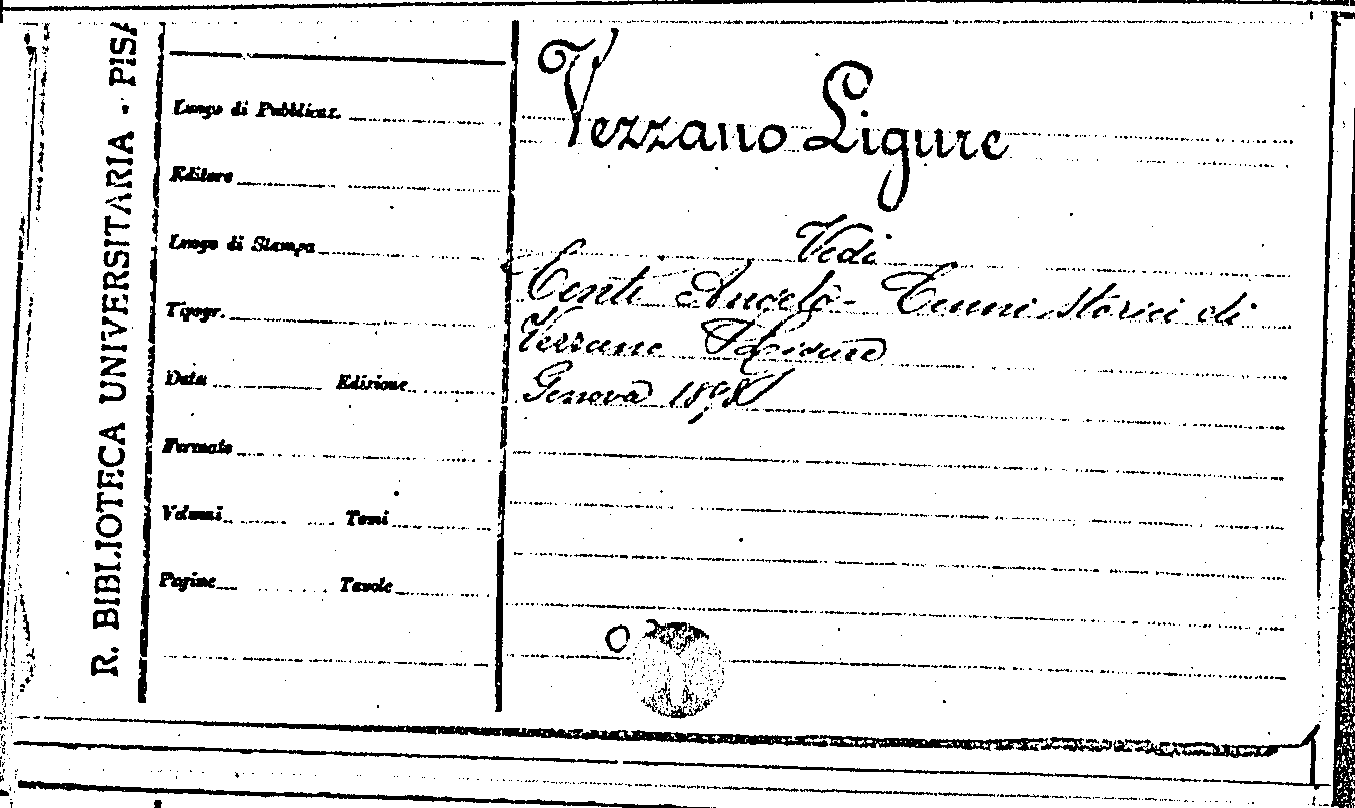 R. BIBLIOTECA UNIVERSITARIA - PISA
Luogo di Pubblicaz.
Editore
Luogo di Stampa
Tipogr.
Data Edizione
Formato
Volumi Tomi
Pagine Tavole
Vezzano Ligure
Vedi
Conti Angelo - Cenni storici di
Vezzano Ligure
Genova 1898